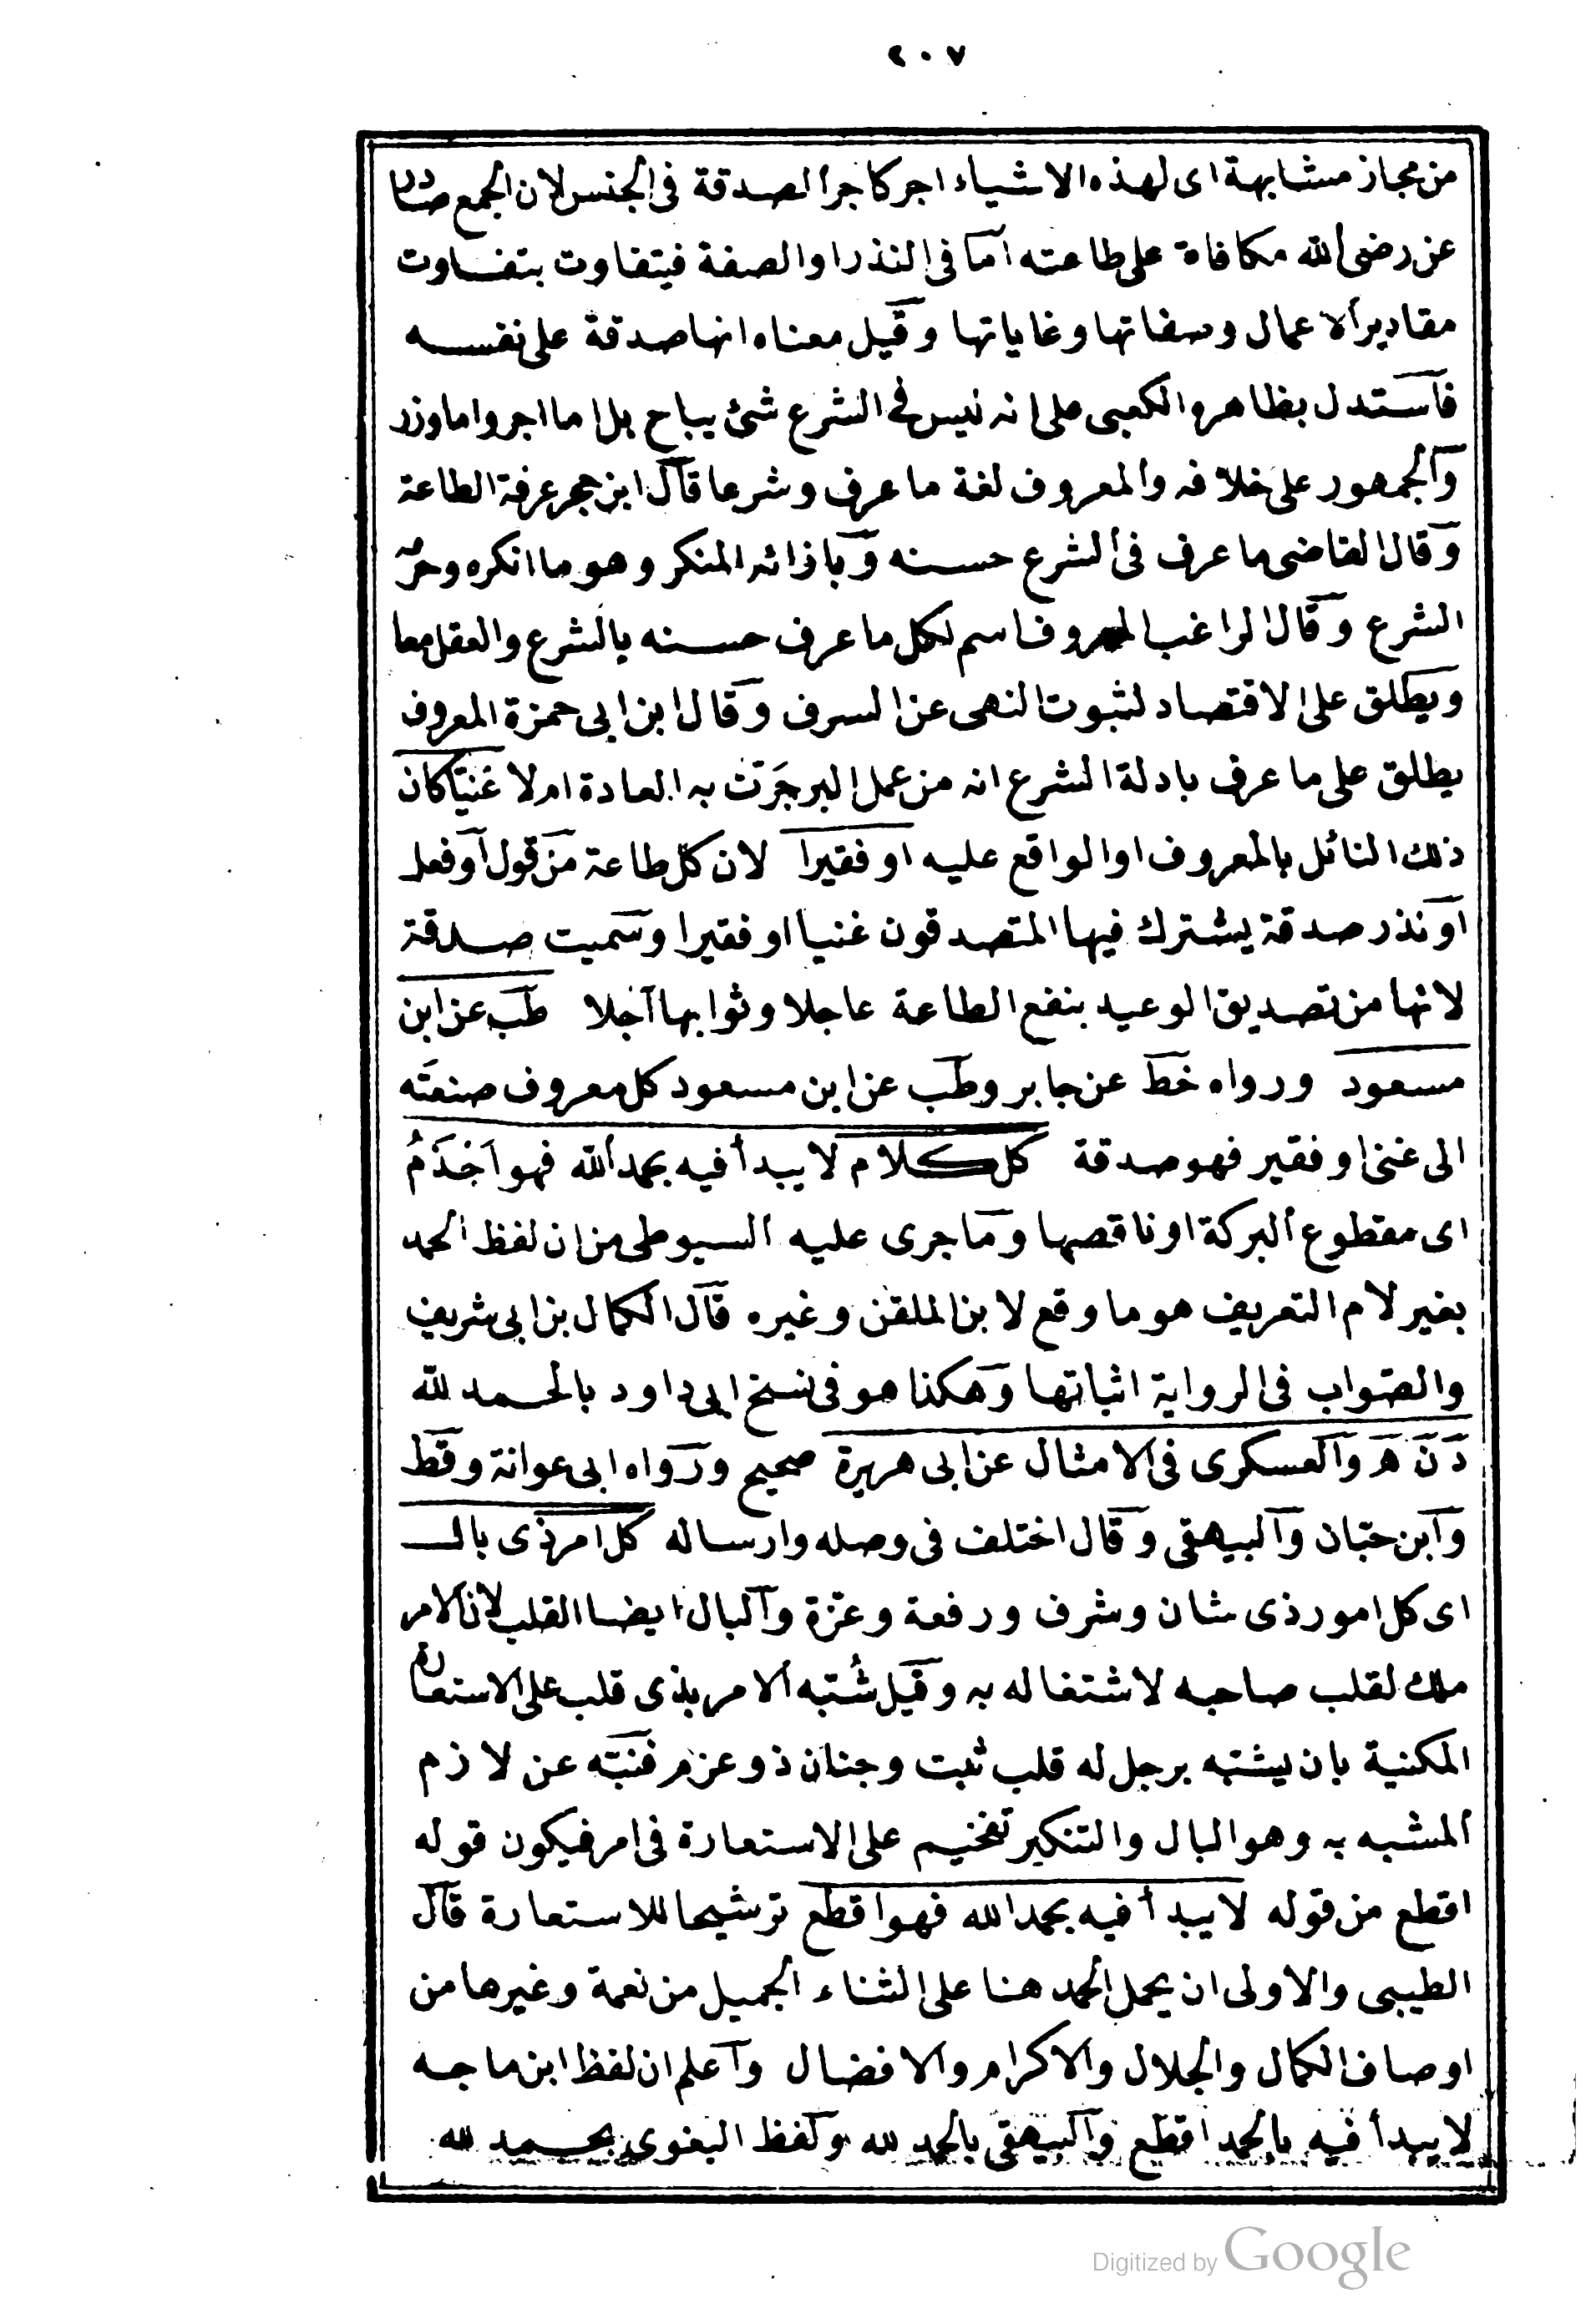 ٢٠٧
من مجاز مشابهة اى لهذه الاشياء اجر كاجر الصدقة فى الجنس لان الجمع صادر
عن رضى الله مكافاة على طاعته اما فى النذر او الصفة فيتفاوت بتفاوت
مقادير الاعمال وصفاتها وغاياتها وقيل معناه انها صدقة على نفسه
فاستدل بظاهره الكعبى على انه ليس فى الشرع شئ يباح بل اما اجر واما وزر
والجمهور على خلافه والمعروف لغة ما عرف وشرعا قال ابن حجر عرفة الطاعة
وقال القاضى ما عرف فى الشرع حسنه وبازائه المنكر وهو ما انكره وحرمه
الشرع وقال الراغب المعروف اسم لكل ما عرف حسنه بالشرع والعقل معا
ويطلق على الاقتصاد لثبوت النهى عن السرف وقال ابن ابى حمزة المعروف
يطلق على ما عرف بادلة الشرع انه من عمل البر جَرَتْ به العادة ام لا غنيّا كان
ذلك النائل بالمعروف او الواقع عليه او فقيرا لان كل طاعة من قول او فعل
او نذر صدقة يشترك فيها المتصدقون غنيا او فقيرا وسميت صدقة
لانها من تصديق الوعيد بنفع الطاعة عاجلا وثوابها آجلا طب عن ابن
مسعود ورواه خط عن جابر وطب عن ابن مسعود كل معروف صنعته
الى غنى او فقير فهو صدقة كل كلام لا يبدأ فيه بحمد الله فهو اَجْذَمُ
اى مقطوع البركة او ناقصها وما جرى عليه السيوطى من ان لفظ الحمد
بغير لام التعريف هو ما وقع لابن الملقن وغيره قال الكمال بن ابى شريف
والصّواب فى الرواية اثباتها وهكذا هو فى نسخ ابى داود بالحمد لله
د ن هـ والعسكرى فى الامثال عن ابى هريرة صحيح ورواه ابى عوانة وقط
وابن حبّان والبيهقى وقال اختلف فى وصله وارساله كل امر ذى بال
اى كل امور ذى شان وشرف ورفعة وعزّة والبال ايضا القلب لان الامر
ملك لقلب صاحبه لاشتغاله به وقيل شُبّه الامر بذى قلب على الاستعارة
المكنية بان يشبّه برجل له قلب ثبت وجنان ذو عزم فنبّه عن لازم
المشبه به وهو البال والتنكير تفخيم على الاستعارة فى امر فيكون قوله
اقطع من قوله لا يبدأ فيه بحمد الله فهو اقطع ترشيحا للاستعارة قال
الطيبى والاولى ان يحمل الحمد هنا على الثناء الجميل من نعمة وغيرها من
اوصاف الكمال والجلال والاكرام والافضال واعلم ان لفظ ابن ماجه
لا يبدأ فيه بالحمد اقطع والبيهقى بالحمد لله ولفظ البغوى بحمد لله
Digitized by Google